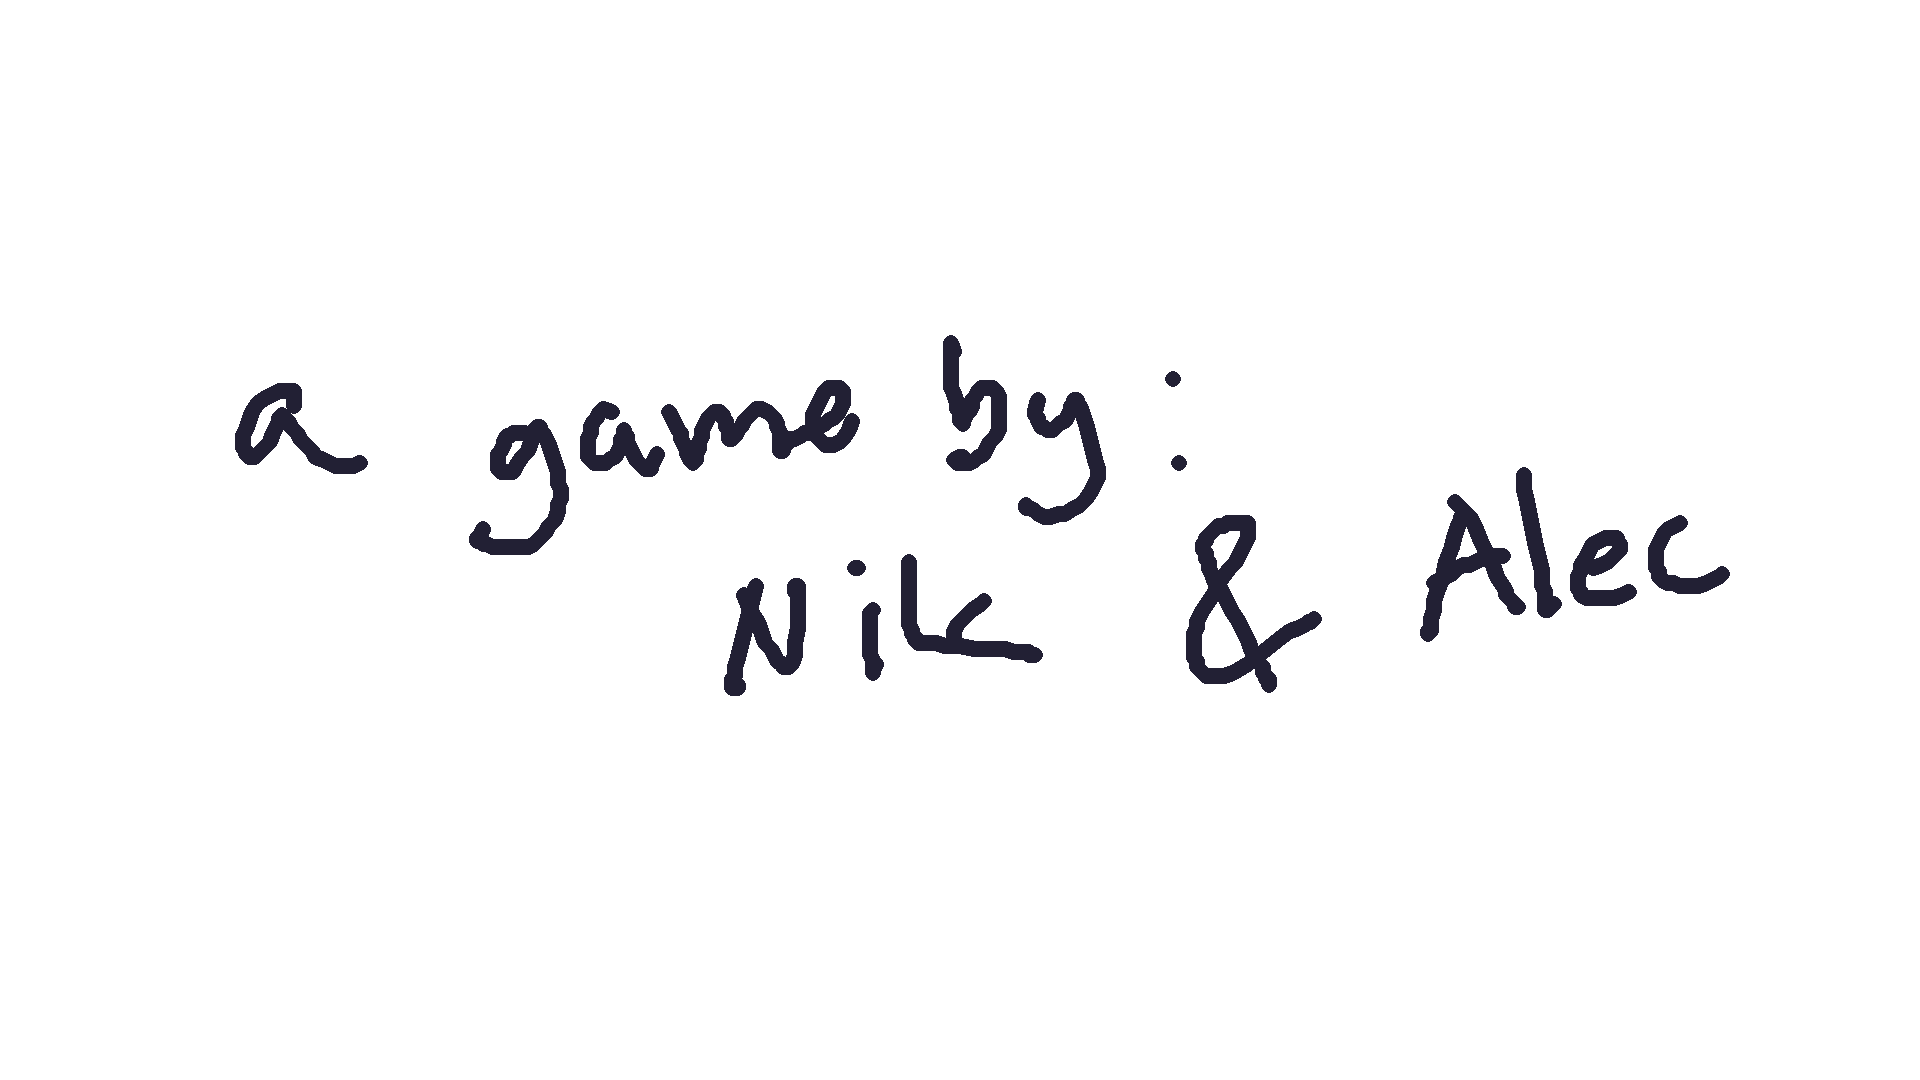 a game by:
Nik & Alec